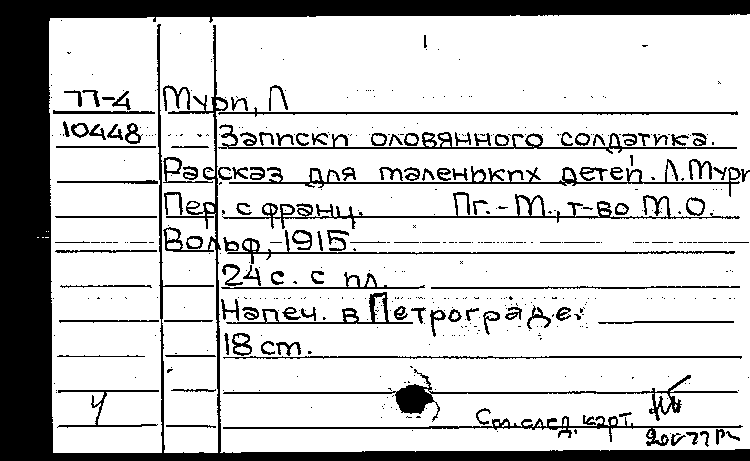 77-4 Мури, Л
10448 Записки оловянного солдатика.
Рассказ для маленьких детей. Л. Мури
Пер. с франц. Пг.-М., т-во М.О.
Вольф, 1915.
24 с. с ил.
Напеч. в Петрограде.
18 см.
Ч
См. след. карт.